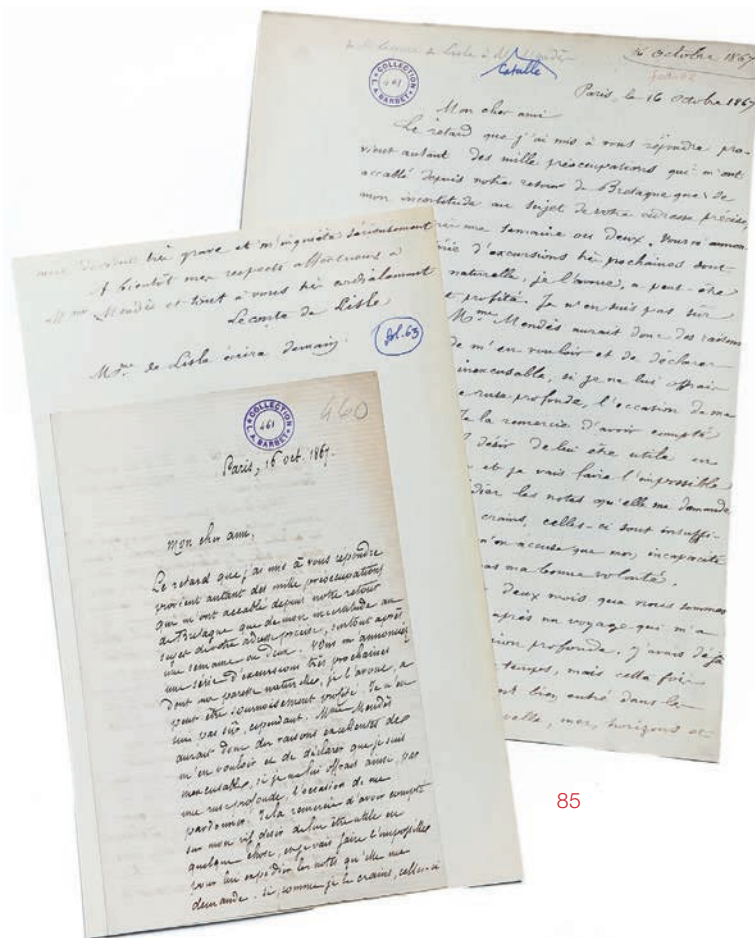 de Leconte de Lisle à M. Mendès
Catulle
16 octobre 1867
COLLECTION
L. A. BARBET
461
Paris, le 16 Octobre 1867
Mon cher ami
Le retard que j'ai mis à vous répondre pro-
vient autant des mille préoccupations qui m'ont
accablé depuis notre retour de Bretagne que de
mon incertitude au sujet de votre adresse précise,
une semaine ou deux. Vous m'annon
série d'excursions très prochaines dont
naturelle, je l'avoue, a peut-être
profité. Je n'en suis pas sûr
Mme Mendès aurait donc des raisons
de m'en vouloir et de déclarer
inexcusable, si je ne lui offrais
ruse profonde, l'occasion de me
Je la remercie d'avoir compté
désir de lui être utile en
et je vais faire l'impossible
les notes qu'elle me demande
crains, celles-ci sont insuffi-
n'en accuse que mon incapacité
pas ma bonne volonté.
deux mois que nous sommes
après un voyage qui m'a
profonde. J'avais déjà
temps, mais cette fois
bien entré dans la
mer, horizons et
très grave et m'inquiète sérieusement
A bientôt mes respects affectueux à
Mme Mendès et tout à vous très cordialement
Leconte de Lisle
Mme de Lisle écrira demain.
fol. 63
COLLECTION
L. A. BARBET
461
460
Paris, 16 oct. 1867.
Mon cher ami,
Le retard que j'ai mis à vous répondre
provient autant des mille préoccupations
qui m'ont accablé depuis notre retour
de Bretagne que de mon incertitude au
sujet de votre adresse précise, surtout après
une semaine ou deux. Vous m'annonciez
une série d'excursions très prochaines
dont ma paresse naturelle, je l'avoue, a
peut être sournoisement profité. Je n'en
suis pas sûr, cependant. Mme Mendès
aurait donc des raisons excellentes de
m'en vouloir et de déclarer que je suis
inexcusable, si je ne lui offrais aussi, par
une ruse profonde, l'occasion de me
pardonner. Je la remercie d'avoir compté
sur mon vif désir de lui être utile en
quelque chose, et je vais faire l'impossible
pour lui expédier les notes qu'elle me
demande. Si, comme je le crains, celles-ci
85